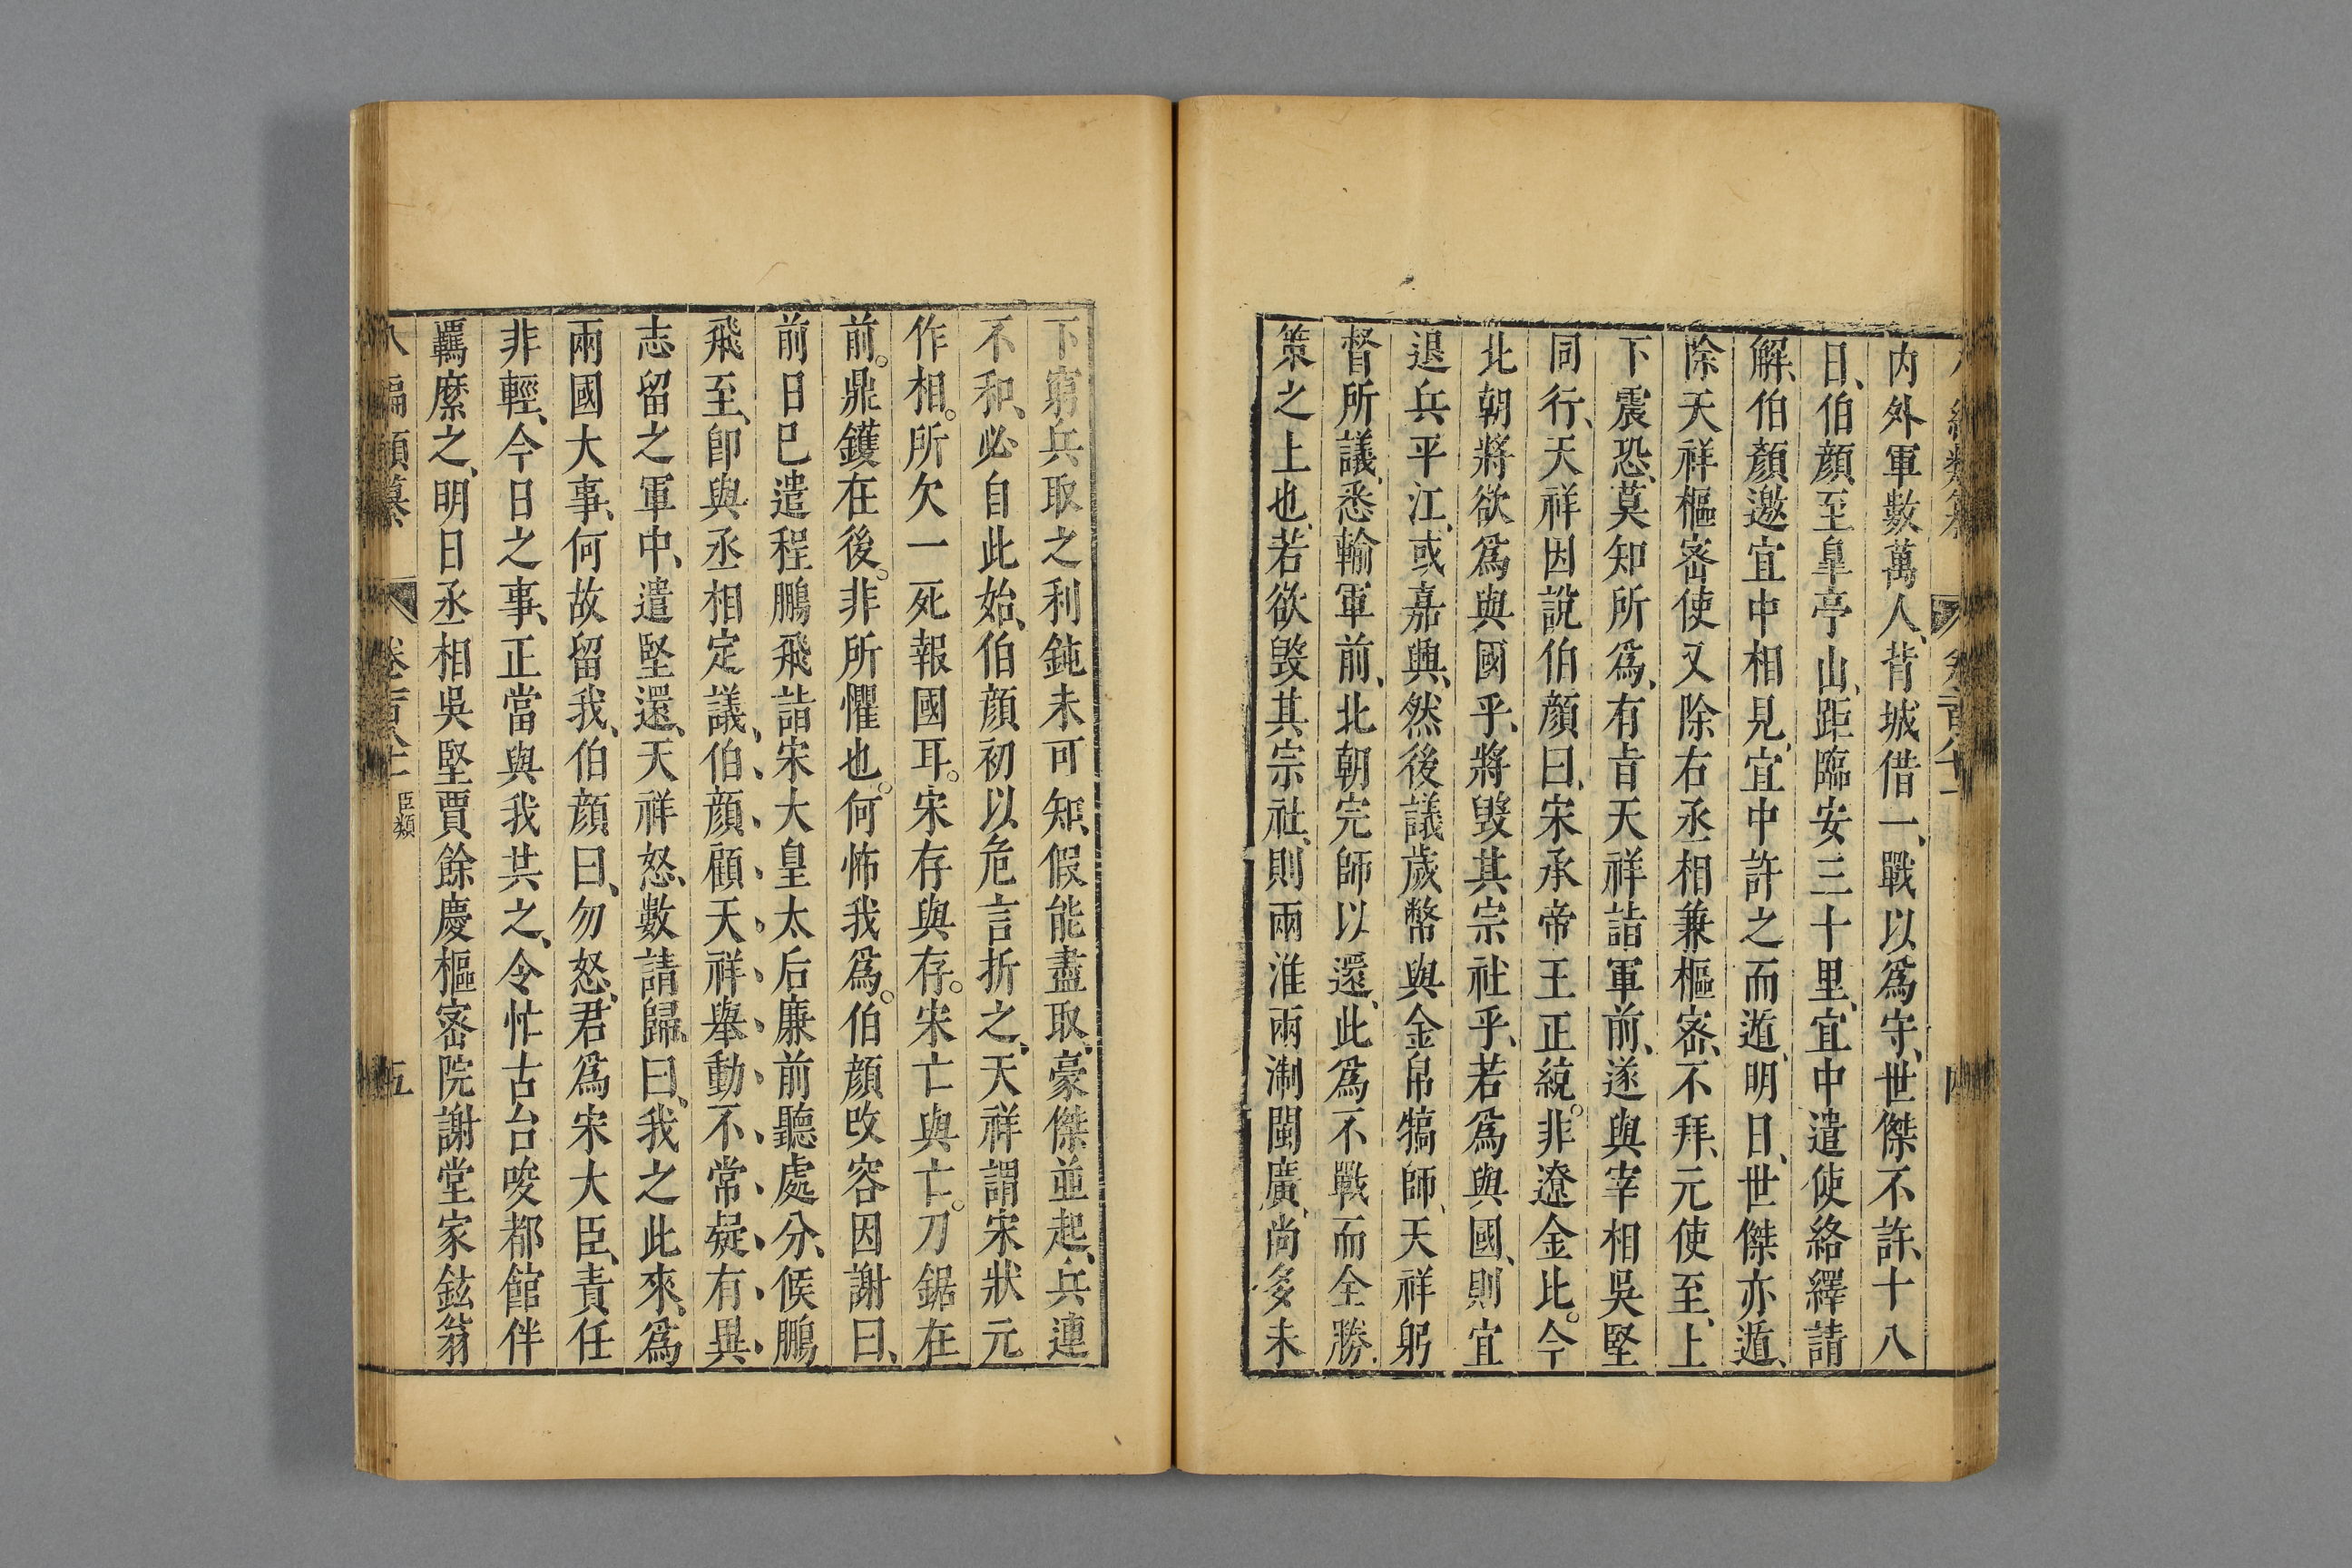 内外軍數萬人、背城借一、戰以爲守、世傑不許、十八
日、伯顔至皐亭山、距臨安三十里、宜中遣使絡繹請
解、伯顔邀宜中相見、宜中許之而遁、明日、世傑亦遁、
除天祥樞密使又除右丞相兼樞密、不拜、元使至、上
下震恐、莫知所爲、有旨天祥詣軍前、遂與宰相吳堅
同行、天祥因說伯顔曰、宋承帝王正統。非遼金比。今
北朝將欲爲與國乎、將毀其宗社乎、若爲與國、則宜
退兵平江、或嘉興、然後議歲幣與金帛犒師、天祥躬
督所議、悉輸軍前、北朝完師以還、此爲不戰而全勝、
策之上也、若欲毀其宗社、則兩淮兩淛閩廣、尚多未
下窮兵取之利鈍未可知、假能盡取、豪傑並起、兵連
不和、必自此始、伯顔初以危言折之、天祥謂宋狀元
作相。所欠一死報國耳。宋存與存。宋亡與亡。刀鋸在
前。鼎鑊在後。非所懼也。何怖我爲。伯顔改容因謝曰、
前日已遣程鵬飛詣宋大皇太后廉前聽處分、候鵬
飛至、卽與丞相定議、伯、顔、顧、天、祥、舉、動、不、常、疑、有、異、
志留之軍中、遣堅還、天祥怒、數請歸、曰、我之此來、爲
兩國大事、何故留我、伯顔曰、勿怒、君爲宋大臣、責任
非輕、今日之事、正當與我共之、令忙古台唆都館伴
羈縻之、明日丞相吳堅賈餘慶樞密院謝堂家鉉翁
八編類纂 卷 臣類 五